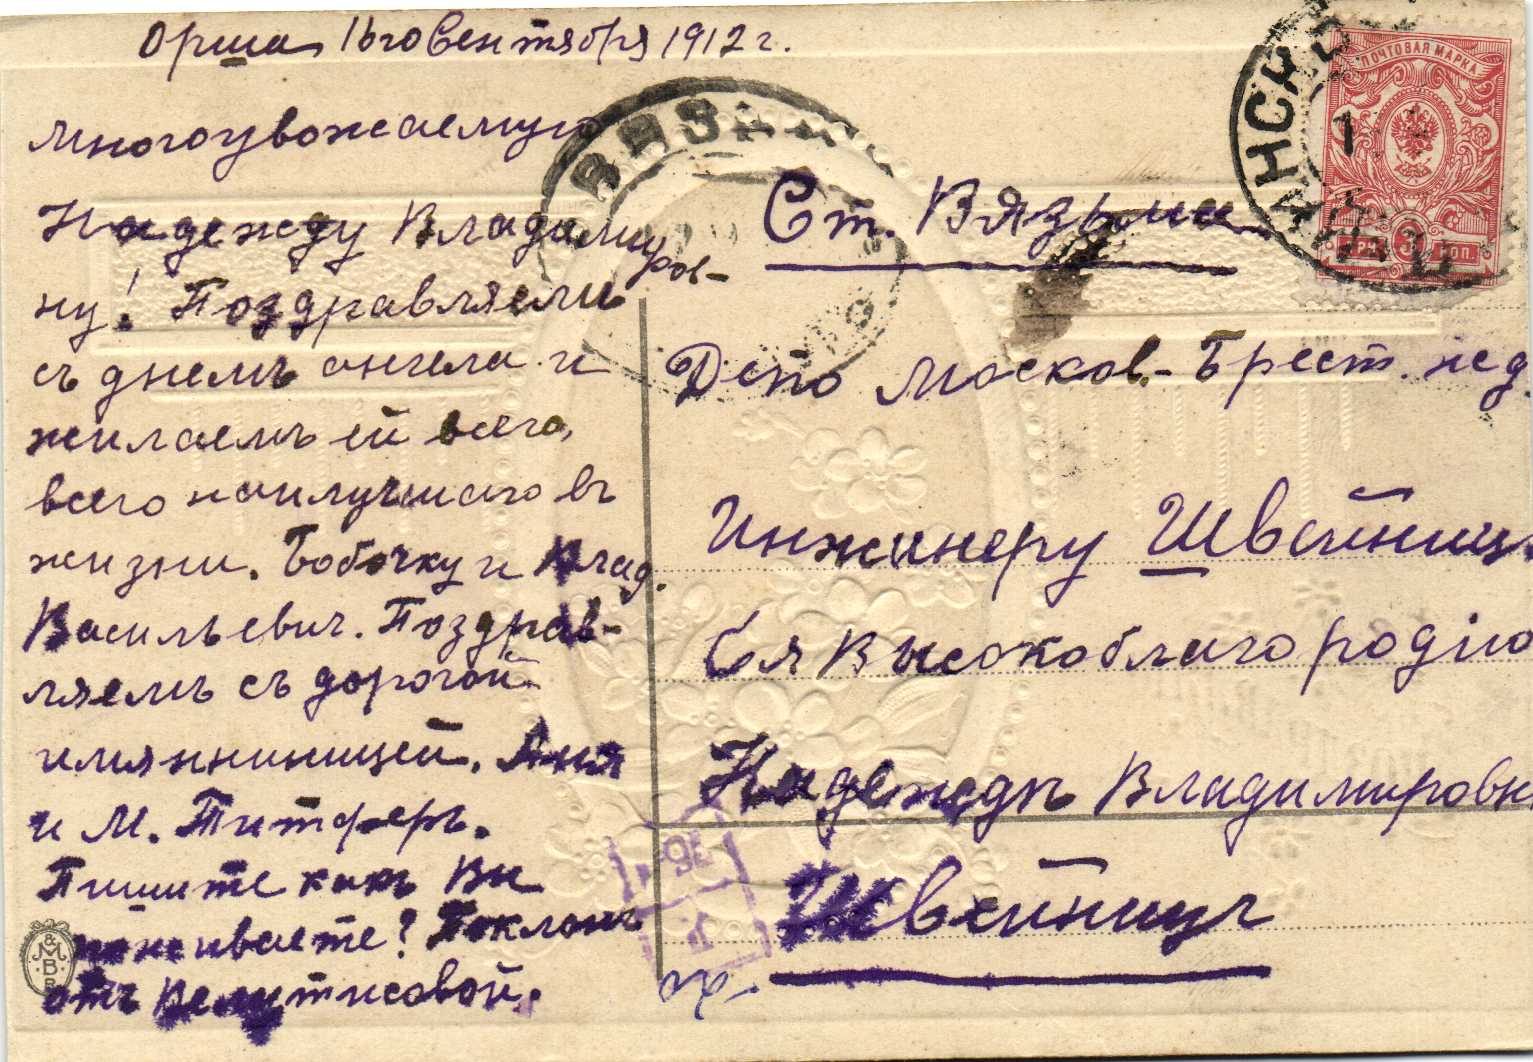 Орша 16го Сентября 1912 г.
Многоуважаемую
Надежду Владимиров-
ну! Поздравляемъ
съ днемъ ангела и
желаемъ ей всего,
всего наилучшаго въ
жизни. Бобочку и Влад.
Васильевич. Поздрав-
ляемъ съ дорогой
имянниницей. Аня
и М. Титферъ.
Пишите какъ Вы
поживаете? Поклонъ
отъ
Ст. Вязьма
Депо Москов.-Брест. жд.
Инженеру Швейниц
Ея Высокоблагородію
Надеждѣ Владимировн
Швейницъ
ПОЧТОВАЯ МАРКА
3 КОП.
ВЯЗЬМА